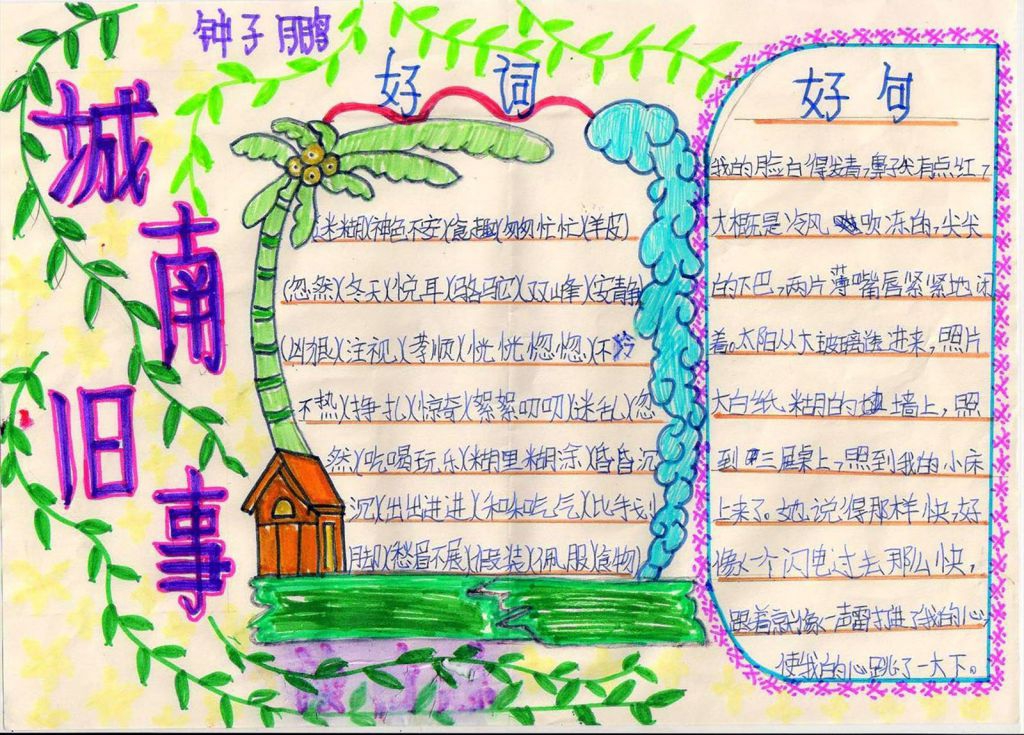 钟子鹏
城南旧事
好词
迷糊)(神色不安)(食趣)(匆匆忙忙)(羊皮)
(忽然)(冬天)(悦耳)(骆驼)(双峰)(安静)
(凶狠)(注视)(孝顺)(恍恍惚惚)(不
不热)(挣扎)(惊奇)(絮絮叨叨)(迷乱)(忽
然)(吃喝玩乐)(糊里糊涂)(昏昏沉
沉)(出出进进)(和 吃气)(比手划
脚)(愁眉不展)(假装)(佩服)(食物)
好句
我的脸白得发青,鼻子尖有点红,
大概是冷风吹冻的,尖尖
的下巴,两片薄嘴唇紧紧地闭
着。太阳从大玻璃透进来,照片
大白纸糊的墙上,照
到三屉桌上,照到我的小床
上来了。她说得那样快,好
像一个闪电过去那么快,
跟着就像一声雷打进了我的心,
使我的心跳了一大下。